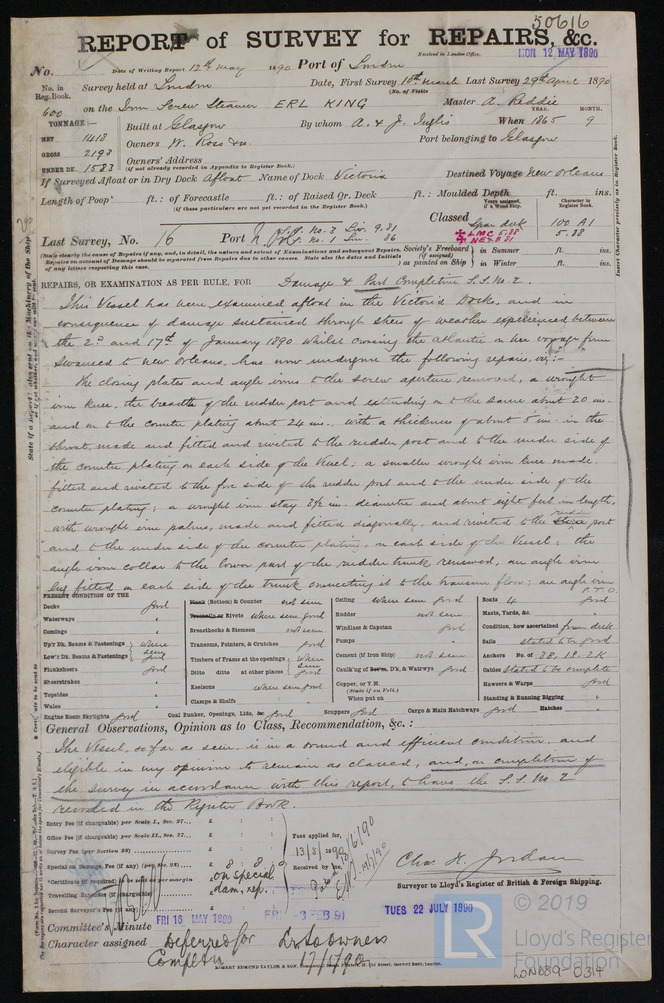 50616
REPORT of SURVEY for REPAIRS, &c.
Received in London Office,
MON 12 MAY 1890
No. Date of Writing Report 12th May 1890 Port of London
No. in Reg. Book. Survey held at London Date, First Survey 10th March Last Survey 29th April 1890
(No. of Visits
600 on the Iron Screw Steamer ERL KING Master A. Reddie
TONNAGE:—
YEAR. MONTH.
NET 1418 Built at Glasgow By whom A. & J. Inglis When 1865 9
GROSS 2193 Owners W. Ross & Co. Port belonging to Glasgow
UNDER DK. 1583 Owners' Address
(if not already recorded in Appendix to Register Book.)
If Surveyed Afloat or in Dry Dock Afloat Name of Dock Victoria Destined Voyage New Orleans
Length of Poop ft.: of Forecastle ft.: of Raised Qr. Deck ft.: Moulded Depth ft. ins.
(if these particulars are not yet recorded in the Register Book.)
Years assigned, if a Wood Ship.
Character in Register Book.
Classed Spar deck 100 A1
5.88
LMC 5.88
Last Survey, No. 16 Port
No. 2 Liv. 9.81
No. 1 Lon. 86
(State clearly the cause of Repairs if any, and, in detail, the nature and extent of Examinations and subsequent Repairs. Repairs on account of Damage should be separated from Repairs due to other causes. State also the dates and Initials of any letters respecting this case.
Society's Freeboard (if assigned) as painted on Ship
in Summer ft. ins.
in Winter ft. ins.
REPAIRS, OR EXAMINATION AS PER RULE, FOR Damage & Part Completion S.S. No. 2.
This Vessel has been examined afloat in the Victoria Dock, and in
consequence of damage sustained through stress of weather experienced between
the 2nd and 17th of January 1890 whilst crossing the Atlantic on her voyage from
Swansea to New Orleans, has now undergone the following repairs, viz:-
The closing plates and angle irons to the screw aperture removed, a wrought
iron knee, the breadth of the rudder post and extending on to the same about 20 ins.
and on to the counter plating about 24 ins., with a thickness of about 5 ins. in the
throat, made and fitted and riveted to the rudder post and to the under side of
the counter plating on each side of the Vessel; a smaller wrought iron knee made,
fitted and riveted to the fore side of the rudder post and to the under side of the
counter plating; a wrought iron stay 3½ ins. diameter and about eight feet in length,
with wrought iron palms, made and fitted diagonally, and riveted to the rudder post
and to the under side of the counter plating, on each side of the Vessel; the
angle iron collar to the lower part of the rudder trunk renewed, an angle iron
lug fitted on each side of the trunk connecting it to the transom floor; an angle iron
P.T.O.
PRESENT CONDITION OF THE
Decks Good
Waterways "
Comings "
Up'r Dk. Beams & Fastenings
Low'r Dk. Beams & Fastenings
where seen good
Planksheers Good
Sheerstrakes "
Topsides "
Wales "
Engine Room Skylights Good
Plank (Bottom) & Counter not seen
Treenails or Rivets where seen good
Breasthooks & Stemson not seen
Transoms, Pointers, & Crutches Good
Timbers of Frame at the openings
Ditto ditto at other places
Where seen good
Keelsons where seen good
Clamps & Shelfs
Coal Bunker, Openings, Lids, &c Good
Ceiling where seen good
Rudder not seen
Windlass & Capstan Good
Pumps "
Cement (if Iron Ship) not seen
Caulking of Bot'm, D'k, & Watrwys Good
Copper, or Y.M.
(State if on Felt.)
When put on
Scuppers Good
Boats 4 Good
Masts, Yards, &c. "
Condition, how ascertained from deck
Sails stated to be good
Anchors No. of 3B, 1S, 2K
Cables stated to be complete
Hawsers & Warps Good
Standing & Running Rigging "
Cargo & Main Hatchways Good Hatches "
General Observations, Opinion as to Class, Recommendation, &c.:
The Vessel, so far as seen, is in a sound and efficient condition, and
eligible in my opinion to remain as classed, and, on completion of
the survey in accordance with this report, to have the S.S. No 2
recorded in the Register Book.
Entry Fee (if chargeable) per Scale I., Sec. 27... £ : :
Office Fee (if chargeable) per Scale II., Sec. 27... £ : :
Survey Fee (per Section 28) ... £ : :
Special on Damage, Fee (if any) (per Sec. 28)... £ 8 : 8 : 0
on special dam. rep.
*Certificate (if required) to be sent as per margin
Travelling Expenses (if chargeable)
Second Surveyor's Fee (if any)
Fees applied for,
13/5/1890
Received by me,
Chas H. Jordan
Surveyor to Lloyd's Register of British & Foreign Shipping.
Committee's Minute FRI 16 MAY 1890 FRI 6 FEB 91 TUES 22 JULY 1890
Character assigned Deferred for Completn
Lr to owners
17/5/90
ROBERT EDMUND TAYLOR & SON
© 2019
LR
Lloyd's Register
Foundation
LON689-0314